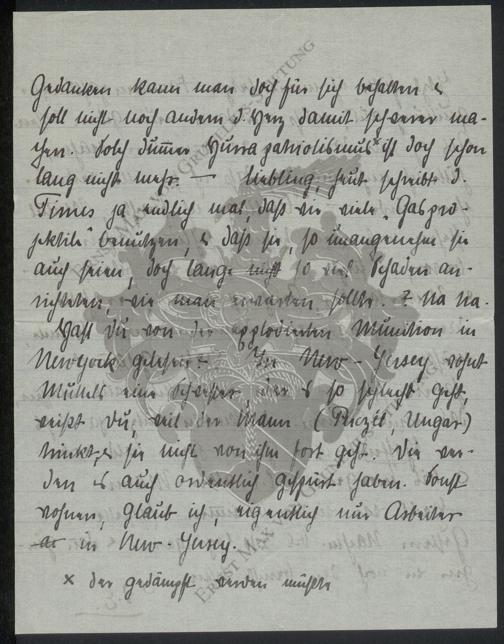 Gedanken kann man doch für sich behalten &
soll nicht noch andern d. Herz damit schwerer ma-
chen. Solch dummer Hurrapatriotismus x ist doch schon
lang nicht mehr. — Liebling, heut schreibt d.
Times ja endlich mal, daß wir viele "Gaspro-
jektile" benutzen, & daß sie, so unangenehm sie
auch seien, doch lange nicht so viel Schaden an-
richteten, wie man erwarten sollte. Na na.
Hast Du von der explodierten Munition in
Newyork gelesen? In New-Jersey wohnt
Mühels eine Schwester, der es so schlecht geht,
weißt Du, weil der Mann ( Ungar)
trinkt, & sie nicht von ihm fort geht. Die wer-
den es auch ordentlich gespürt haben. Sonst
wohnen, glaub ich, eigentlich nur Arbeiter
in New-Jersey.
x der gedämpft werden müßte
ERNST MAX VON GRUNELIUS-STIFTUNG